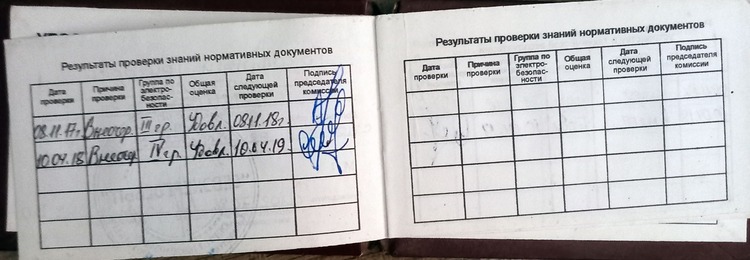 Результаты проверки знаний нормативных документов
Дата проверки Причина проверки Группа по электро-безопас-ности Общая оценка Дата следующей проверки Подпись председателя комиссии
08.11.17г Внеочер. III гр. Удовл. 08.11.18г.
10.04.18 Внеочер. IV гр. Удовл. 10.04.19.
Результаты проверки знаний нормативных документов
Дата проверки Причина проверки Группа по электро-безопас-ности Общая оценка Дата следующей проверки Подпись председателя комиссии